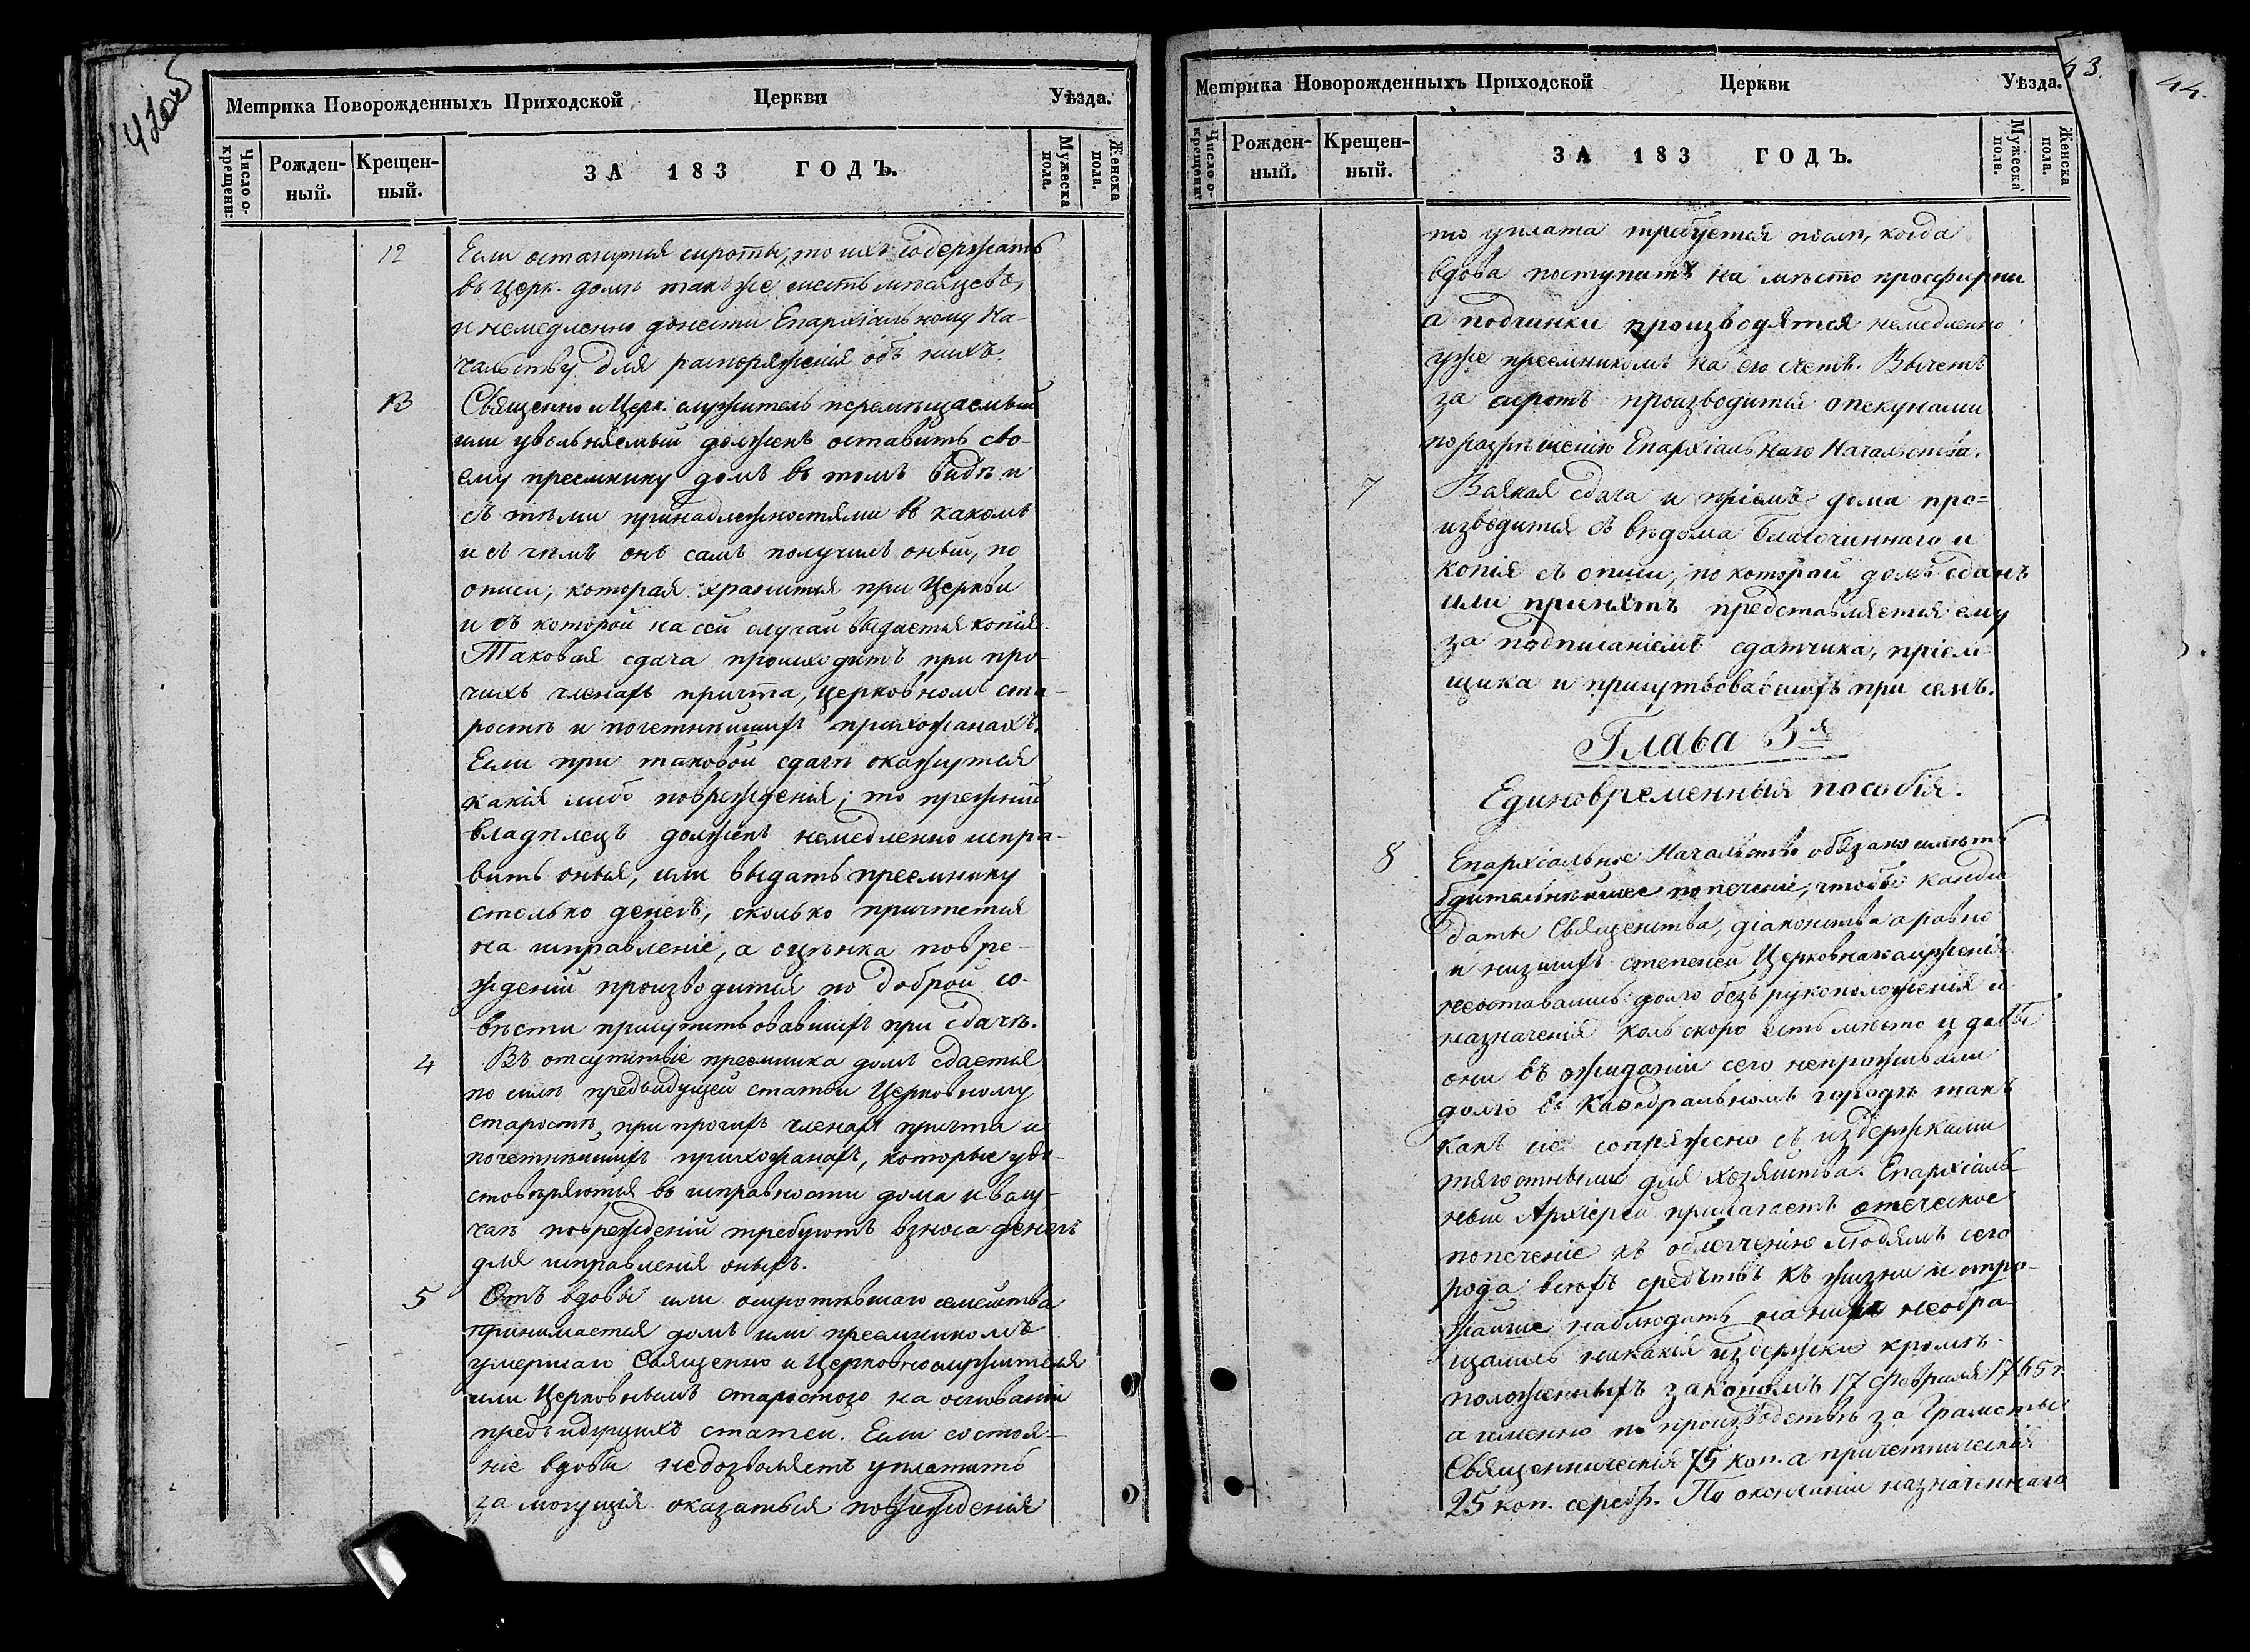 Метрика Новорожденныхъ Приходской Церкви Уѣзда.
Число о-
крещенн:
Рожден-
ный.
Крещен-
ный.
ЗА 183 ГОДЪ.
Мужеска
пола.
Женска
пола.
12 Если останутся сироты, то ихъ содержать
въ церк. домѣ также шесть мѣсяцевъ,
и немедленно донести Епархіальному На-
чальству для распоряженія объ нихъ.
13 Священно и Церк. служитель перемѣщаемый
или увольняемый долженъ оставить сво-
ему преемнику домъ въ томъ видѣ и
съ тѣми принадлежностями въ какомъ
и съ чѣмъ онъ самъ получилъ оный, по
описи, которая хранится при Церкви
и съ которой на сей случай выдается копія.
Таковая сдача происходитъ при про-
чихъ членахъ причта, церковномъ ста-
ростѣ и почетнѣйшихъ прихожанахъ.
Если при таковой сдачѣ окажутся
какія либо поврежденія; то прежній
владѣлецъ долженъ немедленно испра-
вить оныя, или выдать преемнику
столько денегъ, сколько причтется
на исправленіе, а оцѣнка повре-
жденій производится по доброй со-
вѣсти присутствовавшихъ при сдачѣ.
4 Въ отсутствіе преемника домъ сдается
по силѣ предъидущей статьи Церковному
старостѣ, при прочихъ членахъ причта и
почетнѣйшихъ прихожанахъ, которые удо-
стовѣряются въ исправности дома и въ слу-
чаѣ поврежденій требуютъ взноса денегъ
для исправленія оныхъ.
5 Отъ вдовы или осиротѣвшаго семейства
принимается домъ или преемникомъ
умершаго Священно и Церковнослужителя
или Церковнымъ старостою на основаніи
предъидущихъ статей. Если состоя-
ніе вдовы недозволяетъ уплатить
за могущія оказаться поврежденія
43.
44.
Метрика Новорожденныхъ Приходской Церкви Уѣзда.
Число о-
крещенн:
Рожден-
ный.
Крещен-
ный.
ЗА 183 ГОДЪ.
Мужеска
пола.
Женска
пола.
то уплата требуется послѣ, когда
вдова поступитъ на мѣсто просфирни
а подчинки производятся немедленно
уже преемникомъ на ею счетъ. Вычетъ
за сиротъ производится опекунами
по разрѣшенію Епархіальнаго Начальства.
7 Всякая сдача и пріемъ дома про=
изводится съ вѣдома Благочиннаго и
копія съ описи, по которой домъ сданъ
или принятъ представляется ему
за подписаніемъ сдатчика, пріем-
щика и присутствовавшихъ при семъ.
Глава 5я
Единовременныя пособія.
8 Епархіальное Начальство обязано имѣть
бдительнѣйшее попеченіе, чтобы канди
даты Священства, діаконства а равно
и низшихъ степеней Церковнаго служенія
неоставались долго безъ рукоположенія и
назначенія коль скоро есть мѣсто и дабы
они въ ожиданіи сего непроживали
долго въ Каѳедральномъ городѣ такъ
какъ сіе сопряжено съ издержками
тягостными для хозяйства. Епархіаль-
ный Архіерей прилагаетъ отеческое
попеченіе къ облегченію людямъ сего
рода всѣхъ средствъ къ жизни и стро-
жайше наблюдать на нихъ необра-
щались никакія издержки кромѣ
положенныхъ закономъ 17 Февраля 1765 г.
а именно по производствѣ за Грамоты
Священническія 75 коп. а причетническія
25 коп. серебр. По окончаніи назначеннаго